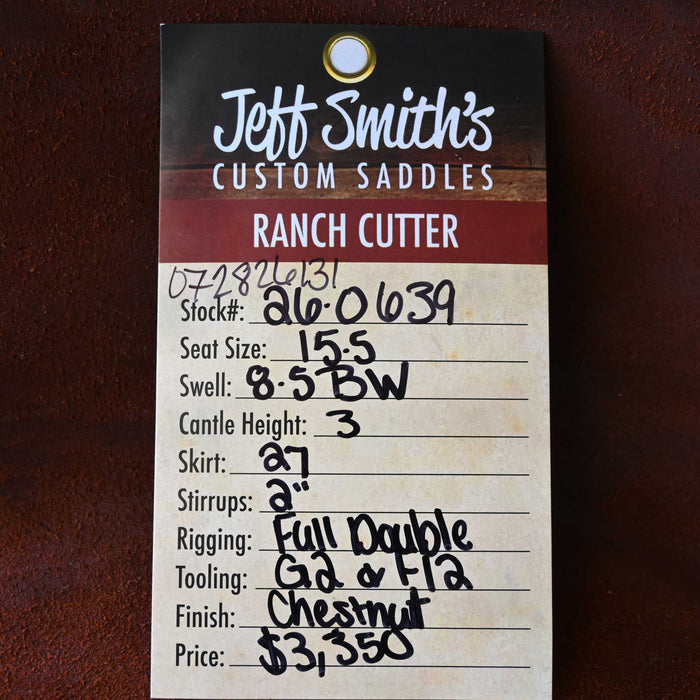 Jeff Smith's
CUSTOM SADDLES
RANCH CUTTER
072826131
Stock#: 26-0639
Seat Size: 15.5
Swell: 8.5 BW
Cantle Height: 3
Skirt: 27
Stirrups: 2"
Rigging: Full Double
Tooling: G2 & F12
Finish: Chestnut
Price: $3,350